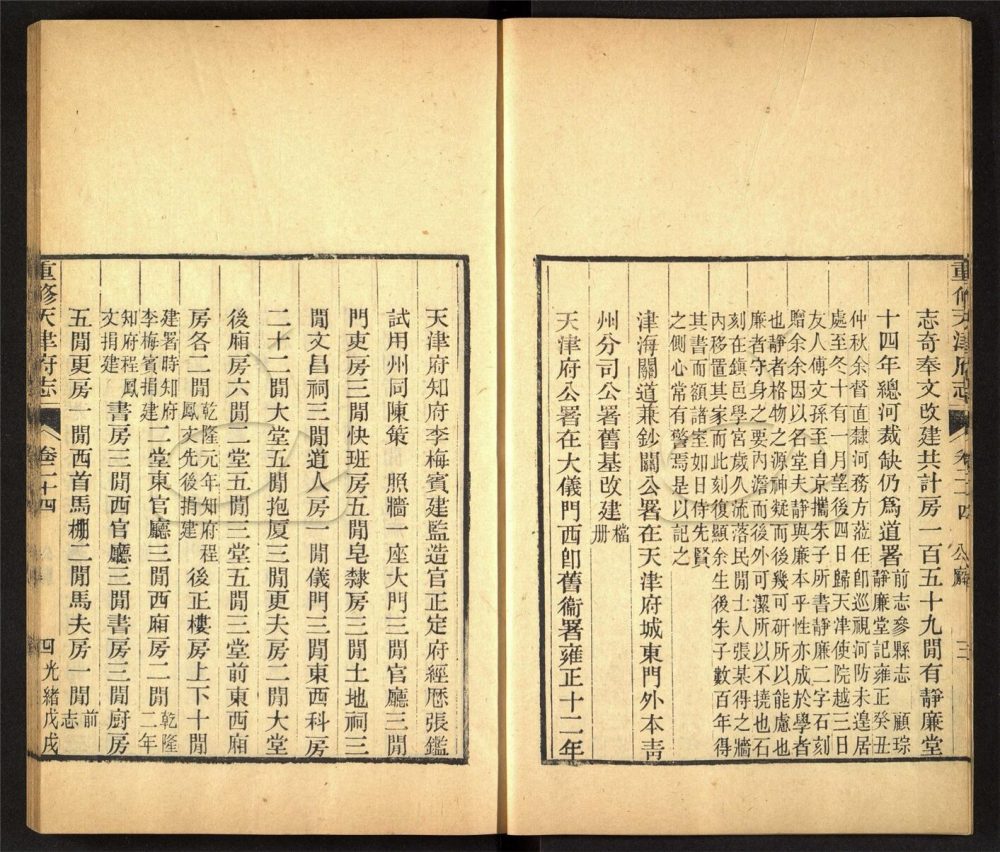 重修天津府志
卷二十四 公廨
三
志奇奉文改建共計房一百五十九閒有靜廉堂
十四年總河裁缺仍爲道署前志參縣志 顧琮
靜廉堂記雍正癸丑
仲秋余督直隸河務方蒞任卽巡視河防未遑居
處至冬十有一月望後四日歸天津使院越三日
友人傳文孫至自京攜朱子所書靜廉二字石刻
贈余余因以名堂夫靜與廉本乎性亦成於學者
也靜者格物之源神疑而後幾可研所以能慮也
廉者守身之要內澹而後外可潔所以不撓也石
刻在鎭邑學宮歲久流落民閒士人張某得之牆
內移置其家而此刻復顯余生後朱子數百年得
其書而額諸室如日侍先賢
之側心常有警焉是以記之
津海關道兼鈔關公署在天津府城東門外本靑
州分司公署舊基改建檔
册
天津府公署在大儀門西卽舊衞署雍正十二年
天津府知府李梅賓建監造官正定府經歷張鑑
試用州同陳策 照牆一座大門三閒官廳三閒
門吏房三閒快班房五閒皂隸房三閒土地祠三
閒文昌祠三閒道人房一閒儀門三閒東西科房
二十二閒大堂五閒抱廈三閒更夫房二閒大堂
後廂房六閒二堂五閒三堂五閒三堂前東西廂
房各二閒乾隆元年知府程
鳳文先後捐建後正樓房上下十閒
建署時知府
李梅賓捐建二堂東官廳三閒西廂房二閒乾隆
二年
知府程鳳
文捐建書房三閒西官廳三閒書房三閒廚房
五閒更房一閒西首馬棚二閒馬夫房一閒前
志
重修天津府志
卷二十四
四
光緒戊戌